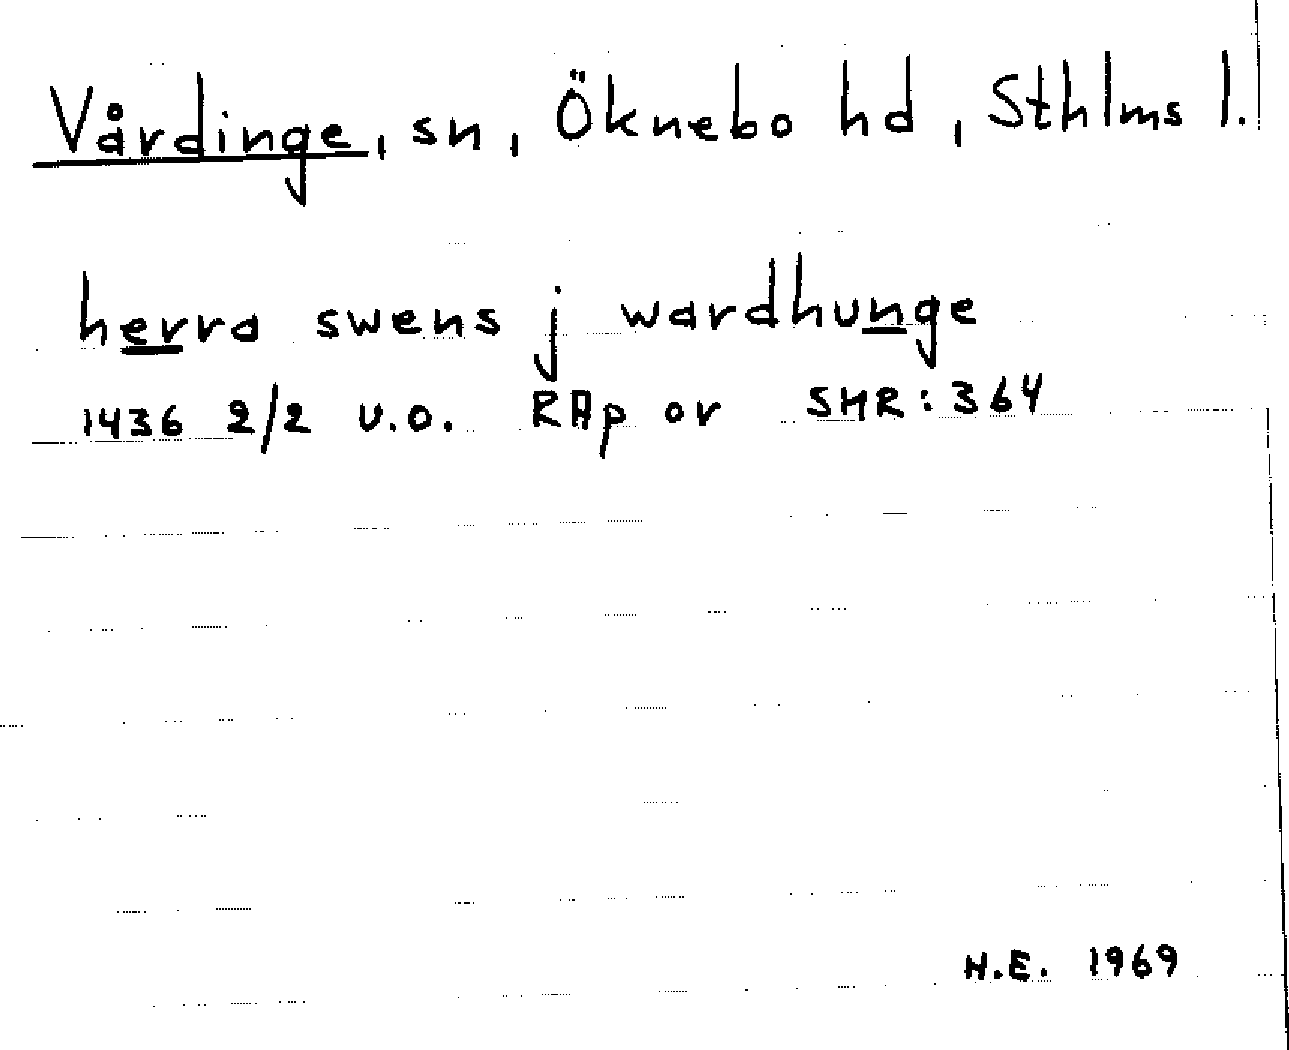 Vårdinge, sn, Öknebo hd, Sthlms l.
herra swens j wardhunge
1436 2/2 u.o. RAp or SMR: 364
H.E. 1969